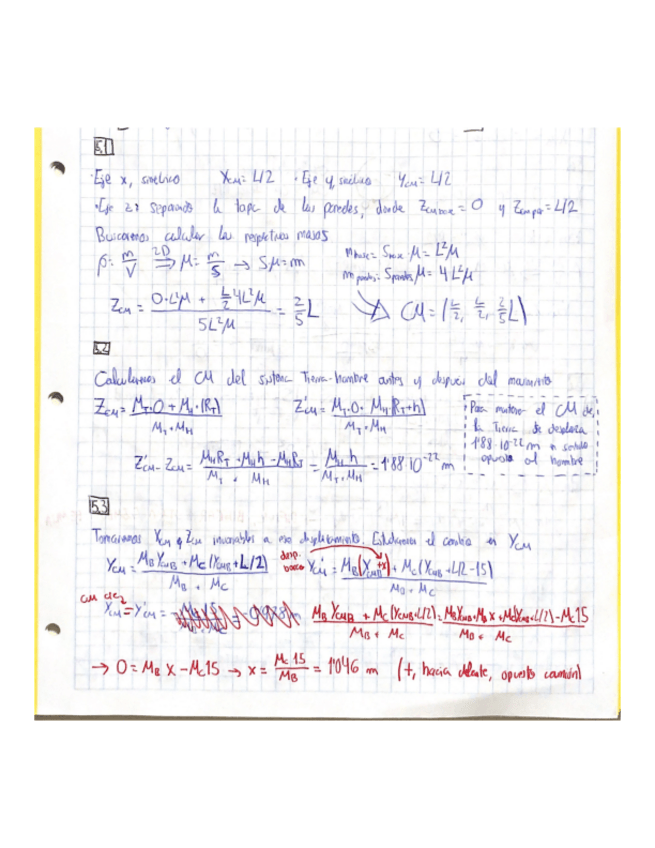 5.1
· Eje x, simétrico X_CM = L/2 · Eje y, simétrico Y_CM = L/2
· Eje z: separamos la tapa de las paredes, donde Z_CM base = 0 y Z_CM par = L/2
Buscaremos calcular las respectivas masas
ρ = m/V 2D ⇒ μ = m/S → Sμ = m
m base = S base · μ = L²μ
m paredes = S paredes μ = 4L²μ
Z_CM = (0·L²μ + L/2 4L²μ) / 5L²μ = 2/5 L
CM = (L/2, L/2, 2/5 L)
5.2
Calculemos el CM del sistema Tierra-hombre antes y después del movimiento
Z_CM = (M_T·0 + M_H·(R_T)) / (M_T + M_H) Z'_CM = (M_T·0 + M_H(R_T+h)) / (M_T + M_H)
Z'_CM - Z_CM = (M_H R_T + M_H h - M_H R_T) / (M_T + M_H) = M_H h / (M_T + M_H) = 1'88·10^-22 m
· Para mantener el CM de
la Tierra se desplaza
1'88·10^-22 m en sentido
opuesto al hombre
5.3
Tomaremos X_CM y Z_CM invariables a ese desplazamiento. Estudiaremos el cambio en Y_CM
Y_CM = (M_B Y_CMB + M_C (Y_CMB + L/2)) / (M_B + M_C) desp. barco Y'_CM = (M_B (Y_CMB + x) + M_C (Y_CMB + L/2 - 15)) / (M_B + M_C)
Y_CM = Y'_CM = (M_B Y_CMB + M_C (Y_CMB + L/2)) / (M_B + M_C) = (M_B Y_CMB + M_B x + M_C (Y_CMB + L/2) - M_C 15) / (M_B + M_C)
→ 0 = M_B x - M_C 15 → x = M_C 15 / M_B = 1'046 m (+, hacia delante, opuesto camión)